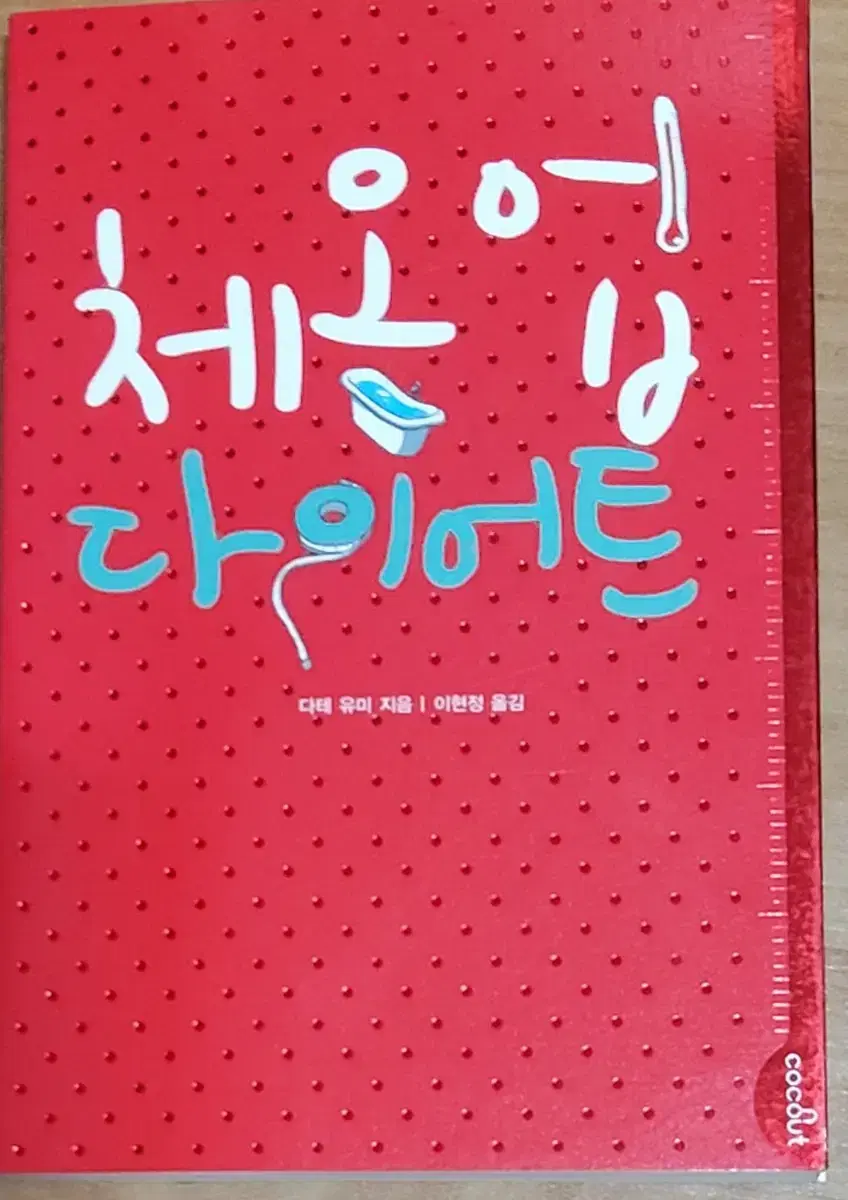 체온 업
다이어트
다테 유미 지음 | 이현정 옮김
cocout